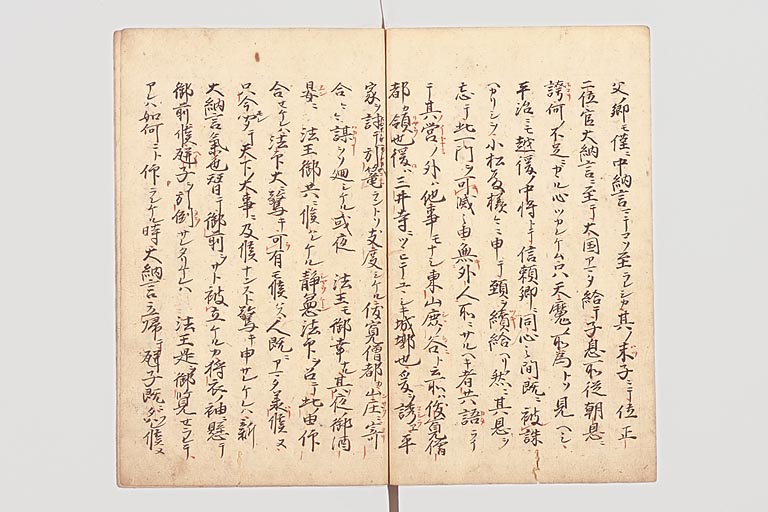 父ノ卿モ僅ニ中納言ニテコソ至ラレシカ其ノ末子ニテ位正
二位官大納言ニ至テ大国アマタ給テ子息所従朝恩ニ
誇何ノ不足ニカゝル心ツカレケム只天魔ノ所為トソ見ヘシ
平治ニモ越後ノ中将トテ信頼卿ニ同心ノ間既ニ被誅
ヘカリシヲ小松殿様々ニ申テ頸ヲ続給ヘリ然ニ其恩ヲ
忘テ此一門ヲ可滅之由無外人所ニサルヘキ者共語ラヒ
テ其ノ営ノ外ハ他事モナシ東山鹿ノ谷ト云所ハ俊寛僧
都カ領也後ハ三井寺ニツヽキテユヽシキ城墎也爰ニ誘エ平
家ヲ討テ引籠ラントソ支度シケル俊寛僧都カ山庄ニ寄
合々々謀ヲソ廻シケル或夜 法王モ御幸ナル其夜ノ御酒
宴ニ 法王御共ニ候ハレケル静憲法印ヲ召テ此由仰
合セケレハ法印大ニ驚テ可有モ候ハス人既ニアマタ承候ヌ
只今漏テ天下ノ大事ニ及候ナンスト驚テ申サレケレハ新
大納言気色替テ御前ヲサト被立ケルカ狩衣ノ袖ニ懸テ
御前ニ候瓶子ヲ引倒サレタリケレハ 法王是ヲ御覧セラレテ
アレハ如何ニト仰ラレケル時大納言立帰テ瓶子既ニ候ヌ